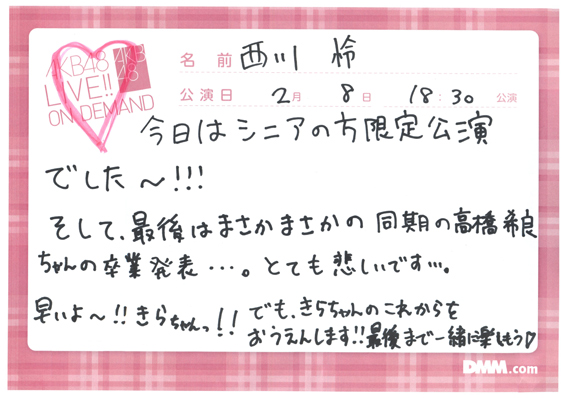 AKB48
LIVE!!
ON DEMAND
AKB
48
名 前 西川 怜
公演日 2月 8日 18:30 公演
今日はシニアの方限定公演
でした〜!!!
そして、最後はまさかまさかの 同期の高橋希良
ちゃんの卒業発表…。とても悲しいです…。
早いよ〜!!きらちゃんっ!!
でも、きらちゃんのこれからを
おうえんします!!最後まで一緒に楽しもう♡
DMM.com